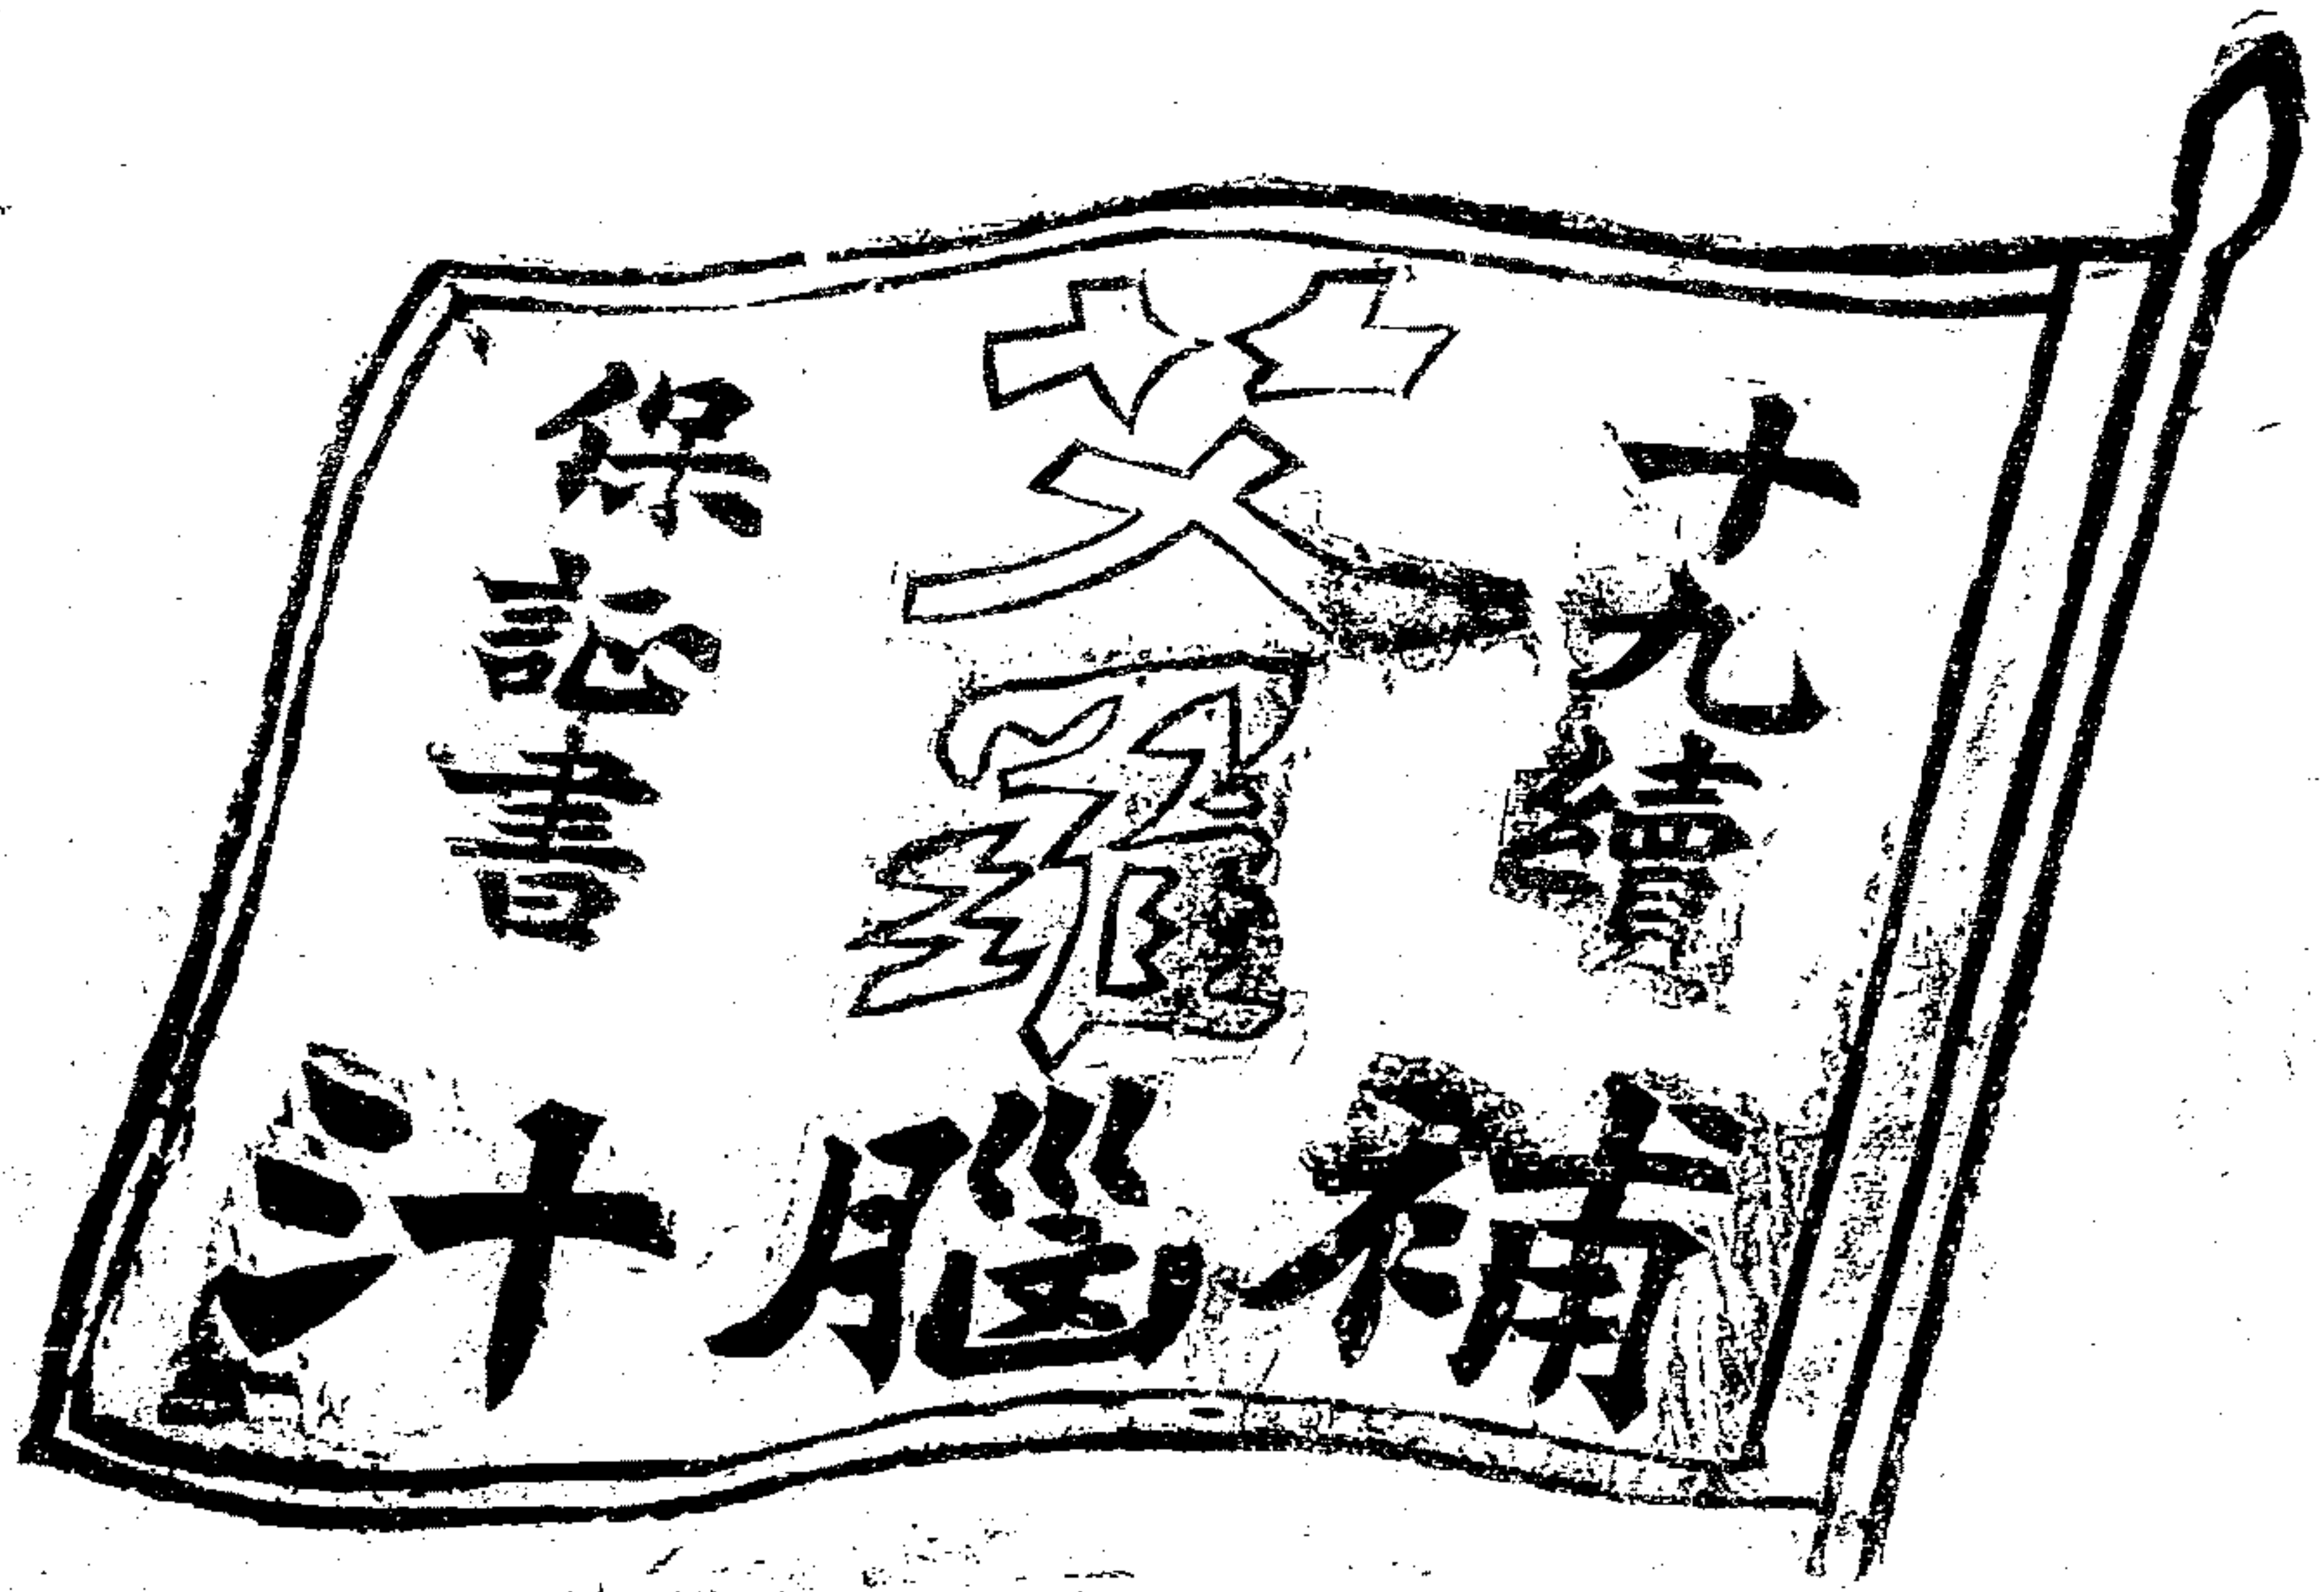 十九續
艾羅
保証書
補腦汁